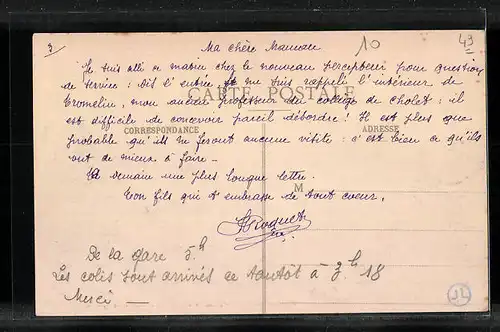 3
10
49
Ma chère Maman
Je suis allé ce matin chez le nouveau percepteur pour question
de service : dès l'entrée je me suis rappelé l'intérieur de
CARTE POSTALE
Tromelin, mon ancien professeur du collège de Cholet : il
est difficile de concevoir pareil désordre ! Il est plus que
CORRESPONDANCE
ADRESSE
probable qu'ils ne feront aucune visite : c'est bien ce qu'ils
ont de mieux à faire —
A demain une plus longue lettre.
M
Ton fils qui t'embrasse de tout coeur,
De la gare 5h
Les colis sont arrivés ce tantôt à 3h 18
Merci —
JL